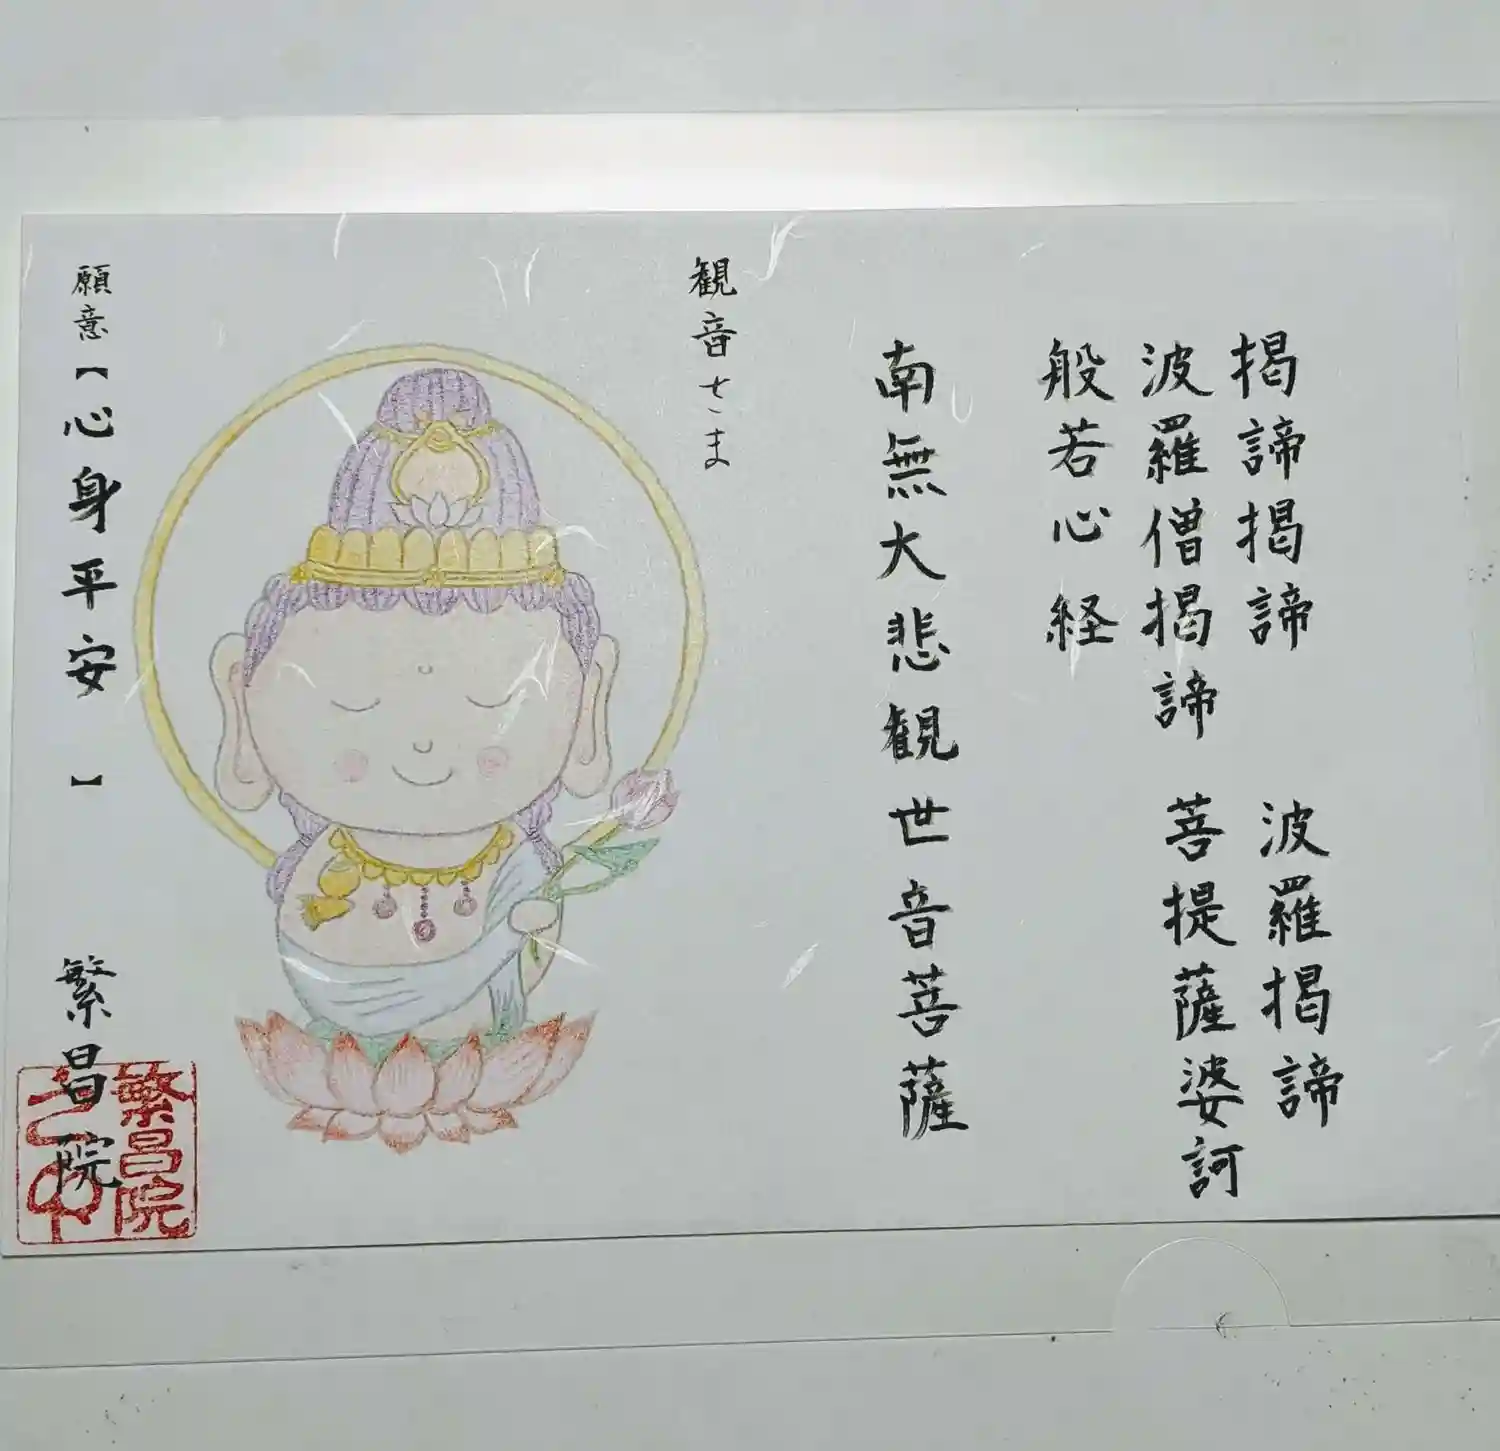 揭諦揭諦 波羅揭諦
波羅僧揭諦 菩提薩婆訶
般若心経
南無大悲観世音菩薩
観音さま
願意【心身平安 】 繁昌院
繁昌院